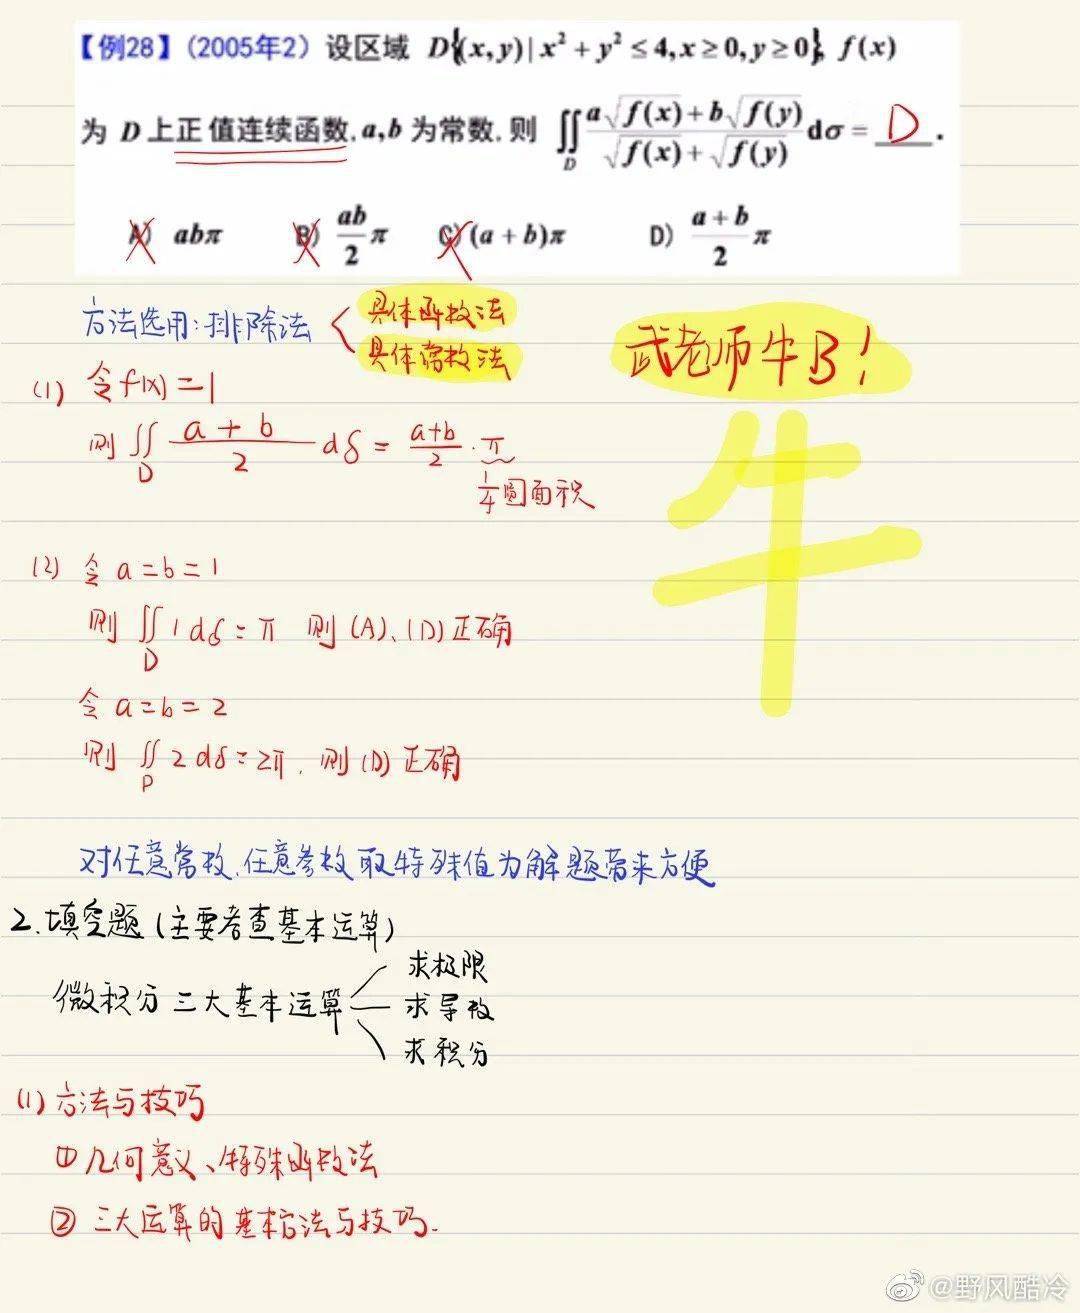 【例28】(2005年2) 设区域 D{(x,y)|x²+y²≤4,x≥0,y≥0}, f(x)
为 D 上正值连续函数, a,b 为常数, 则 ∬_D (a√f(x)+b√f(y))/(√f(x)+√f(y)) dσ = D .
A) abπ B) ab/2 π C) (a+b)π D) (a+b)/2 π
方法选用:排除法 < 具体函数法
具体常数法
武老师牛B!
(1) 令f(x)=1
则 ∬_D (a+b)/2 dδ = (a+b)/2 · π
1/4圆面积
牛
(2) 令 a=b=1
则 ∬_D 1 dδ = π 则 (A)、(D) 正确
令 a=b=2
则 ∬_D 2 dδ = 2π, 则 (D) 正确
对任意常数、任意参数取特殊值为解题带来方便
2.填空题(主要考查基本运算)
微积分三大基本运算
求极限
求导数
求积分
(1) 方法与技巧
① 几何意义、特殊函数法
② 三大运算的基本方法与技巧.
@野风酷冷